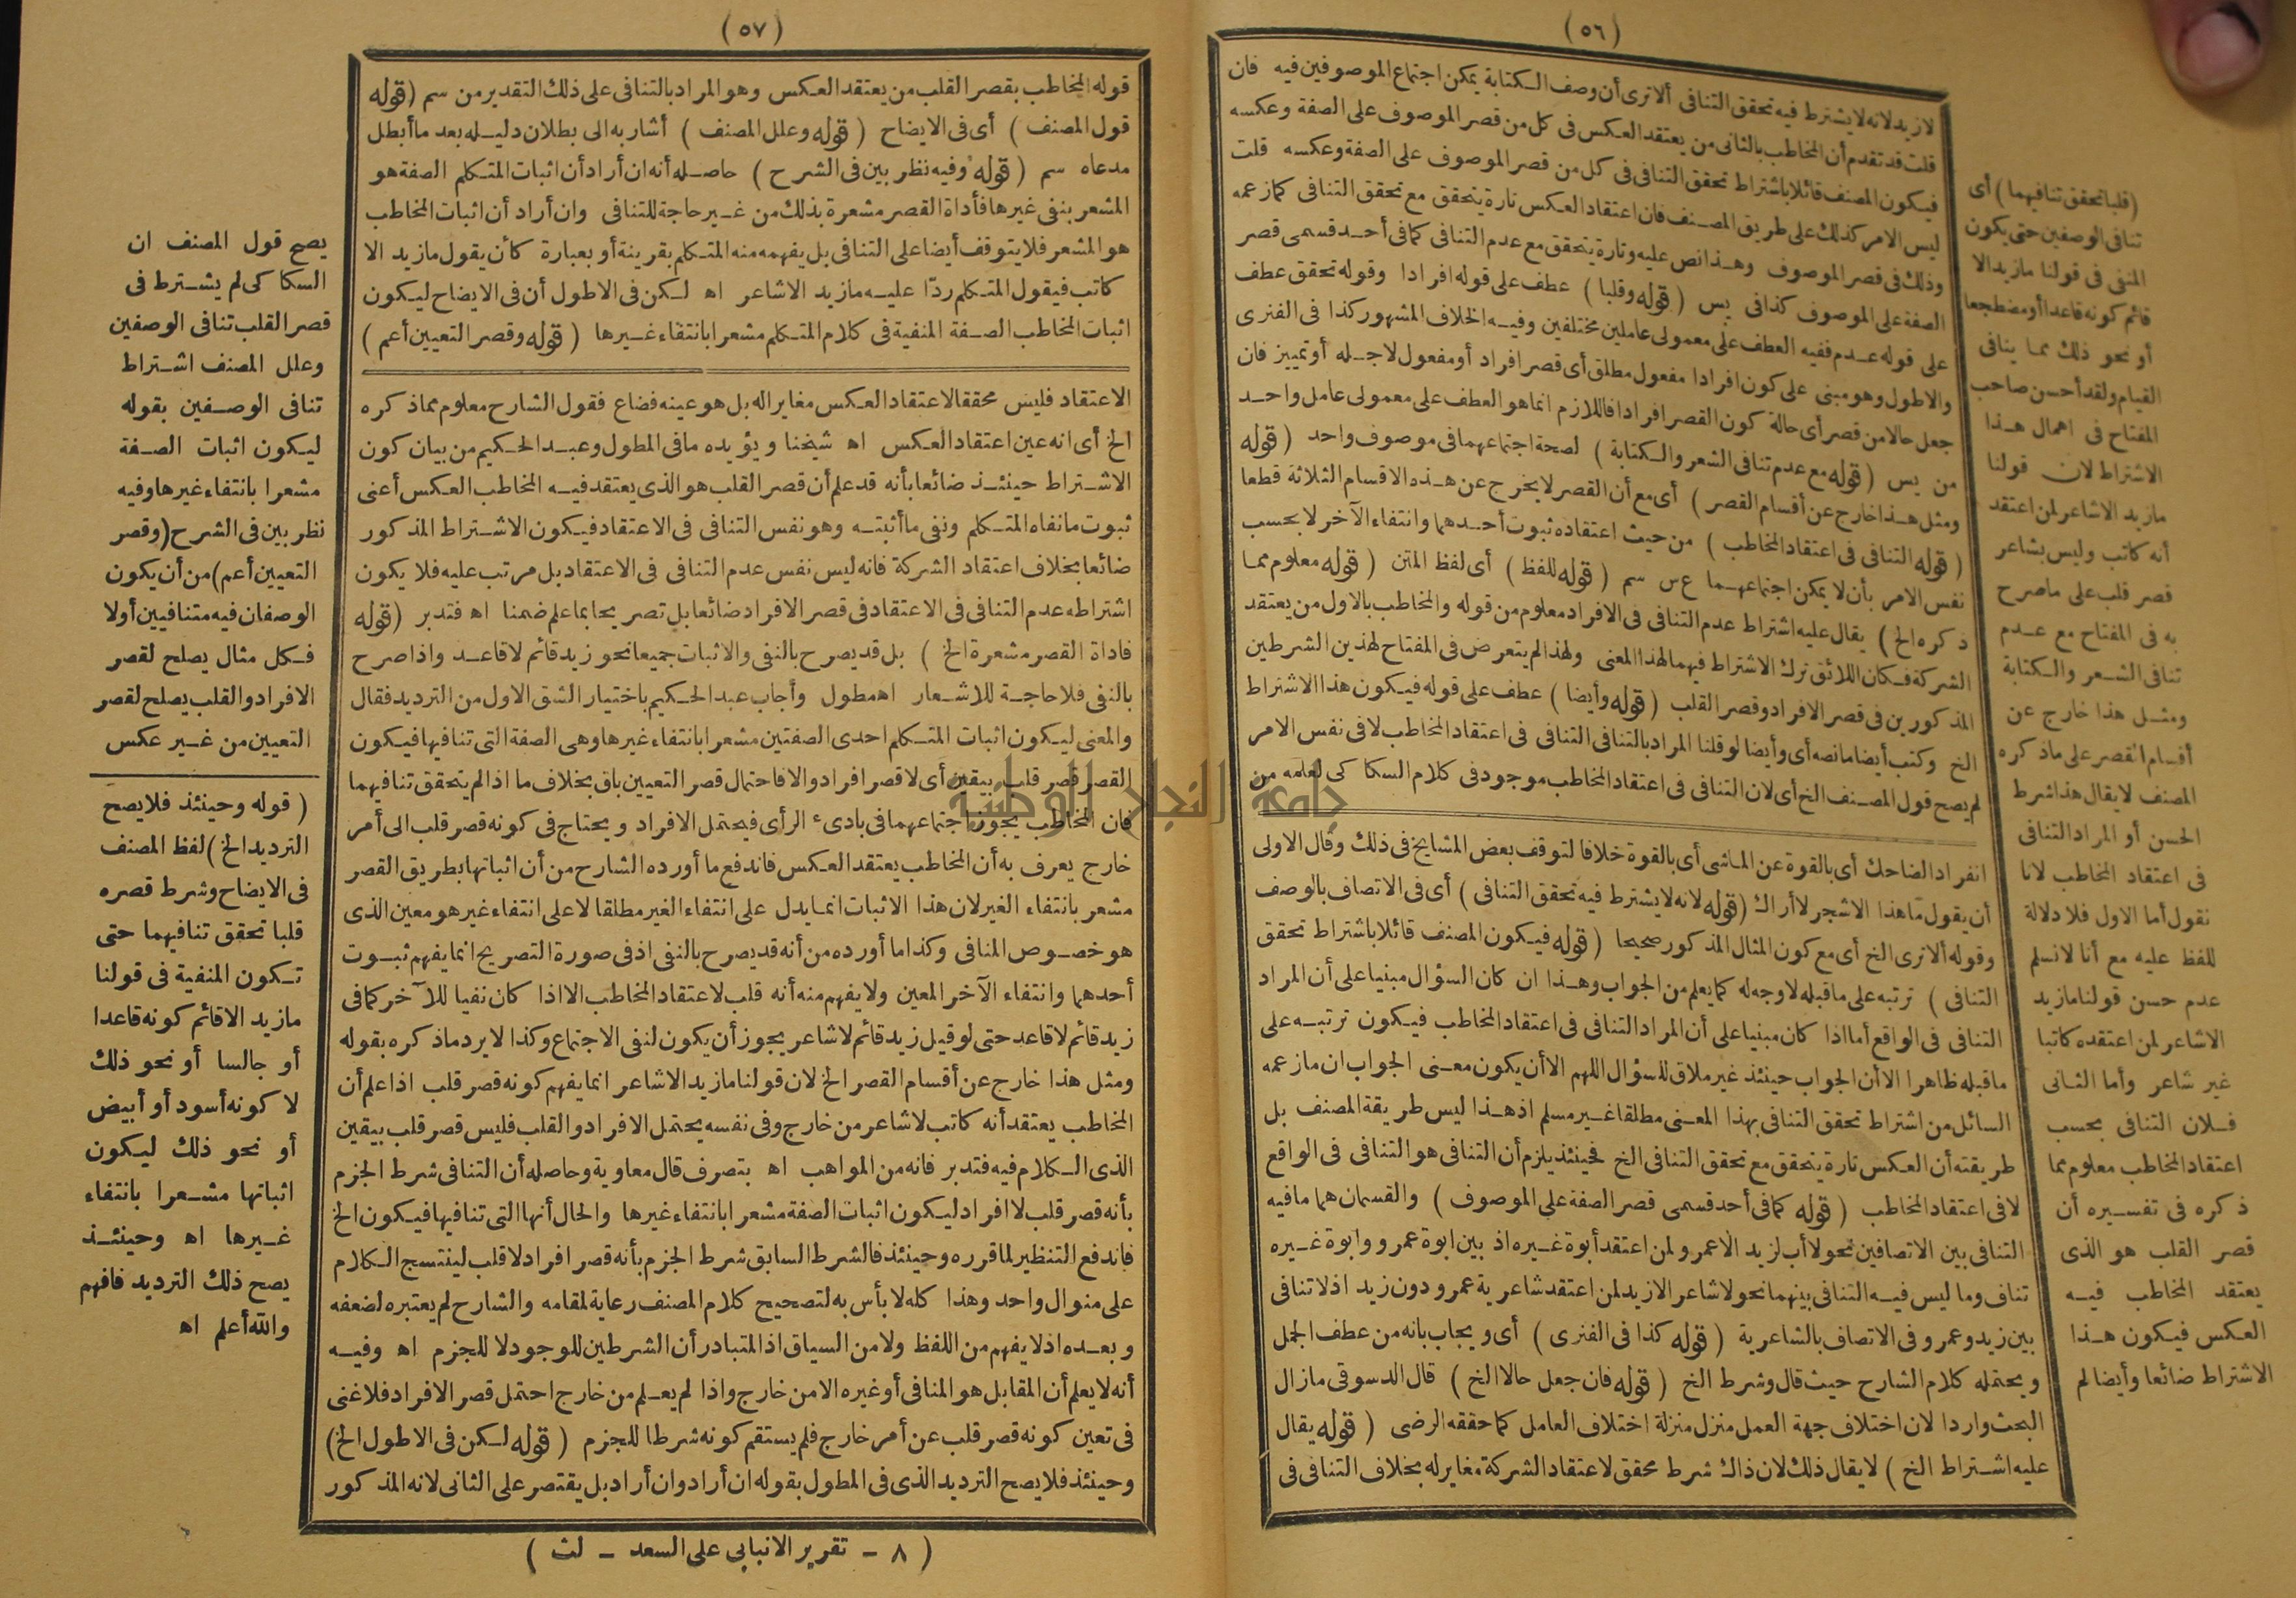 (٥٦)
لا زيد لانه لا يشترط فيه تحقق التنافى ألا ترى أن وصف الكتابة يمكن اجتماع الموصوفين فيه فان
قلت قد تقدم أن المخاطب بالثانى من يعتقد العكس فى كل من قصر الموصوف على الصفة وعكسه
فيكون المصنف قائلا باشتراط تحقق التنافى فى كل من قصر الموصوف على الصفة وعكسه قلت
ليس الامر كذلك على طريق المصنف فان اعتقاد العكس تارة يتحقق مع تحقق التنافى كما زعمه
وذلك فى قصر الموصوف وهذا نص عليه وتارة يتحقق مع عدم التنافى كما فى أحد قسمى قصر
الصفة على الموصوف كذا فى يس (قوله وقلبا) عطف على قوله افرادا وقوله تحقق عطف
على قوله عدم ففيه العطف على معمولى عاملين مختلفين وفيه الخلاف المشهور كذا فى الفنرى
والاطول وهو مبنى على كون افرادا مفعول مطلق أى قصر افراد أو مفعول لاجله أو تمييز فان
جعل حالا من قصر أى حالة كون القصر افرادا فاللازم انما هو العطف على معمولى عامل واحد
من يس (قوله مع عدم تنافى الشعر والكتابة) لصحة اجتماعهما فى موصوف واحد (قوله
ومثل هذا خارج عن أقسام القصر) أى مع أن القصر لا يخرج عن هذه الاقسام الثلاثة قطعا
(قوله التنافى فى اعتقاد المخاطب) من حيث اعتقاده ثبوت أحدهما وانتفاء الآخر لا بحسب
نفس الامر بأن لا يمكن اجتماعهما ع س سم (قوله للفظ) أى لفظ المتن (قوله معلوم مما
ذكره الخ) يقال عليه اشتراط عدم التنافى فى الافراد معلوم من قوله والمخاطب بالاول من يعتقد
الشركة فكان اللائق ترك الاشتراط فيهما لهذا المعنى ولهذا لم يتعرض فى المفتاح لهذين الشرطين
المذكورين فى قصر الافراد وقصر القلب (قوله وأيضا) عطف على قوله فيكون هذا الاشتراط
الخ وكتب أيضا مانصه أى وأيضا لو قلنا المراد بالتنافى التنافى فى اعتقاد المخاطب لا فى نفس الامر
لم يصح قول المصنف الخ أى لان التنافى فى اعتقاد المخاطب موجود فى كلام السكاكى لعلمه من
انفراد الضاحك أى بالقوة عن الماشى أى بالقوة خلافا لتوقف بعض المشايخ فى ذلك وقال الاولى
أن يقول ما هذا الا شجر لا أراك (قوله لانه لا يشترط فيه تحقق التنافى) أى فى الاتصاف بالوصف
وقوله ألا ترى الخ أى مع كون المثال المذكور صحيحا (قوله فيكون المصنف قائلا باشتراط تحقق
التنافى) ترتبه على ما قبله لا وجه له كما يعلم من الجواب وهذا ان كان السؤال مبنيا على أن المراد
التنافى فى الواقع أما اذا كان مبنيا على أن المراد التنافى فى اعتقاد المخاطب فيكون ترتبه على
ما قبله ظاهرا الا أن الجواب حينئذ غير ملاق للسؤال اللهم الا أن يكون معنى الجواب ان ما زعمه
السائل من اشتراط تحقق التنافى بهذا المعنى مطلقا غير مسلم اذ هذا ليس طريقة المصنف بل
طريقته أن العكس تارة يتحقق مع تحقق التنافى الخ فحينئذ يلزم أن التنافى هو التنافى فى الواقع
لا فى اعتقاد المخاطب (قوله كما فى أحد قسمى قصر الصفة على الموصوف) والقسمان هما ما فيه
التنافى بين الاتصافين نحو لا أب لزيد الا عمرو لمن اعتقد أبوة غيره اذ بين ابوة عمرو وابوة غيره
تناف وما ليس فيه التنافى بينهما نحو لا شاعر الا زيد لمن اعتقد شاعرية عمرو دون زيد اذ لا تنافى
بين زيد وعمرو فى الاتصاف بالشاعرية (قوله كذا فى الفنرى) أى ويجاب بانه من عطف الجمل
ويحتمله كلام الشارح حيث قال وشرط الخ (قوله فان جعل حالا الخ) قال الدسوقى ما زال
البحث واردا لان اختلاف جهة العمل منزل منزلة اختلاف العامل كما حققه الرضى (قوله يقال
عليه اشتراط الخ) لا يقال ذلك لان ذاك شرط محقق لاعتقاد الشركة مغاير له بخلاف التنافى فى
(قلبا تحقق تنافيهما) أى
تنافى الوصفين حتى يكون
المنفى فى قولنا ما زيد الا
قائم كونه قاعدا أو مضطجعا
أو نحو ذلك مما ينافى
القيام ولقد أحسن صاحب
المفتاح فى اهمال هذا
الاشتراط لان قولنا
ما زيد الا شاعر لمن اعتقد
أنه كاتب وليس بشاعر
قصر قلب على ما صرح
به فى المفتاح مع عدم
تنافى الشعر والكتابة
ومثل هذا خارج عن
أقسام القصر على ما ذكره
المصنف لا يقال هذا شرط
الحسن أو المراد التنافى
فى اعتقاد المخاطب لانا
نقول أما الاول فلا دلالة
للفظ عليه مع أنا لا نسلم
عدم حسن قولنا ما زيد
الا شاعر لمن اعتقده كاتبا
غير شاعر وأما الثانى
فلان التنافى بحسب
اعتقاد المخاطب معلوم مما
ذكره فى تفسيره أن
قصر القلب هو الذى
يعتقد المخاطب فيه
العكس فيكون هذا
الاشتراط ضائعا وأيضا لم
(٥٧)
قوله المخاطب بقصر القلب من يعتقد العكس وهو المراد بالتنافى على ذلك التقدير من سم (قوله
قول المصنف) أى فى الايضاح (قوله وعلل المصنف) أشار به الى بطلان دليله بعد ما أبطل
مدعاه سم (قوله وفيه نظر بين فى الشرح) حاصله أنه ان أراد أن اثبات المتكلم الصفة هو
المشعر بنفى غيرها فأداة القصر مشعرة بذلك من غير حاجة للتنافى وان أراد أن اثبات المخاطب
هو المشعر فلا يتوقف أيضا على التنافى بل يفهمه منه المتكلم بقرينة أو بعبارة كأن يقول ما زيد الا
كاتب فيقول المتكلم ردّا عليه ما زيد الا شاعر اه لكن فى الاطول أن فى الايضاح ليكون
اثبات المخاطب الصفة المنفية فى كلام المتكلم مشعرا بانتفاء غيرها (قوله وقصر التعيين أعم)
الاعتقاد فليس محققا لاعتقاد العكس مغايرا له بل هو عينه فضاع فقول الشارح معلوم مما ذكره
الخ أى انه عين اعتقاد العكس اه شيخنا ويؤيده ما فى المطول وعبد الحكيم من بيان كون
الاشتراط حينئذ ضائعا بأنه قد علم أن قصر القلب هو الذى يعتقد فيه المخاطب العكس أعنى
ثبوت ما نفاه المتكلم ونفى ما أثبته وهو نفس التنافى فى الاعتقاد فيكون الاشتراط المذكور
ضائعا بخلاف اعتقاد الشركة فانه ليس نفس عدم التنافى فى الاعتقاد بل مرتب عليه فلا يكون
اشتراطه عدم التنافى فى الاعتقاد فى قصر الافراد ضائعا بل تصريحا بما علم ضمنا اه فتدبر (قوله
فاداة القصر مشعرة الخ) بل قد يصرح بالنفى والاثبات جميعا نحو زيد قائم لا قاعد واذا صرح
بالنفى فلا حاجة للاشعار اه مطول وأجاب عبد الحكيم باختيار الشق الاول من الترديد فقال
والمعنى ليكون اثبات المتكلم احدى الصفتين مشعرا بانتفاء غيرها وهى الصفة التى تنافيها فيكون
القصر قصر قلب بيقين أى لا قصر افراد والا فاحتمال قصر التعيين باق بخلاف ما اذا لم تحقق تنافيهما
فان المخاطب يجوز اجتماعهما فى بادىء الرأى فيحتمل الافراد ويحتاج فى كونه قصر قلب الى أمر
خارج يعرف به أن المخاطب يعتقد العكس فاندفع ما أورده الشارح من أن اثباتها بطريق القصر
مشعر بانتفاء الغير لان هذا الاثبات انما يدل على انتفاء الغير مطلقا لا على انتفاء غير هو معين الذى
هو خصوص المنافى وكذا ما أورده من أنه قد يصرح بالنفى اذ فى صورة التصريح انما يفهم ثبوت
أحدهما وانتفاء الآخر المعين ولا يفهم منه أنه قلب لاعتقاد المخاطب الا اذا كان نفيا للآخر كما فى
زيد قائم لا قاعد حتى لو قيل زيد قائم لا شاعر يجوز أن يكون لنفى الاجتماع وكذا لا يرد ما ذكره بقوله
ومثل هذا خارج عن أقسام القصر الخ لان قولنا ما زيد الا شاعر انما يفهم كونه قصر قلب اذا علم أن
المخاطب يعتقد أنه كاتب لا شاعر من خارج وفى نفسه يحتمل الافراد والقلب فليس قصر قلب بيقين
الذى الكلام فيه فتدبر فانه من المواهب اه بتصرف قال معاوية وحاصله أن التنافى شرط الجزم
بأنه قصر قلب لا افراد ليكون اثبات الصفة مشعرا بانتفاء غيرها والحال أنها التى تنافيها فيكون الخ
فاندفع التنظير لما قرره وحينئذ فالشرط السابق شرط الجزم بأنه قصر افراد لا قلب لينتسج الكلام
على منوال واحد وهذا كله لا بأس به لتصحيح كلام المصنف رعاية لمقامه والشارح لم يعتبره لضعفه
وبعده اذ لا يفهم من اللفظ ولا من السياق اذ المتبادر أن الشرطين للوجود لا للجزم اه وفيه
أنه لا يعلم أن المقابل هو المنافى أو غيره الا من خارج واذا لم يعلم من خارج احتمل قصر الافراد فلا غنى
فى تعين كونه قصر قلب عن أمر خارج فلم يستقم كونه شرطا للجزم (قوله لكن فى الاطول الخ)
وحينئذ فلا يصح الترديد الذى فى المطول بقوله ان أراد وان أراد بل يقتصر على الثانى لانه المذكور
يصح قول المصنف ان
السكاكى لم يشترط فى
قصر القلب تنافى الوصفين
وعلل المصنف اشتراط
تنافى الوصفين بقوله
ليكون اثبات الصفة
مشعرا بانتفاء غيرها وفيه
نظر بين فى الشرح (وقصر
التعيين أعم) من أن يكون
الوصفان فيه متنافيين أولا
فكل مثال يصلح لقصر
الافراد والقلب يصلح لقصر
التعيين من غير عكس
(قوله وحينئذ فلا يصح
الترديد الخ) لفظ المصنف
فى الايضاح وشرط قصره
قلبا تحقق تنافيهما حتى
تكون المنفية فى قولنا
ما زيد الا قائم كونه قاعدا
أو جالسا أو نحو ذلك
لا كونه أسود أو أبيض
أو نحو ذلك ليكون
اثباتها مشعرا بانتفاء
غيرها اه وحينئذ
يصح ذلك الترديد فافهم
والله أعلم اه
(٨ – تقرير الانبابى على السعد – لث)
جامعة النجاح الوطنية